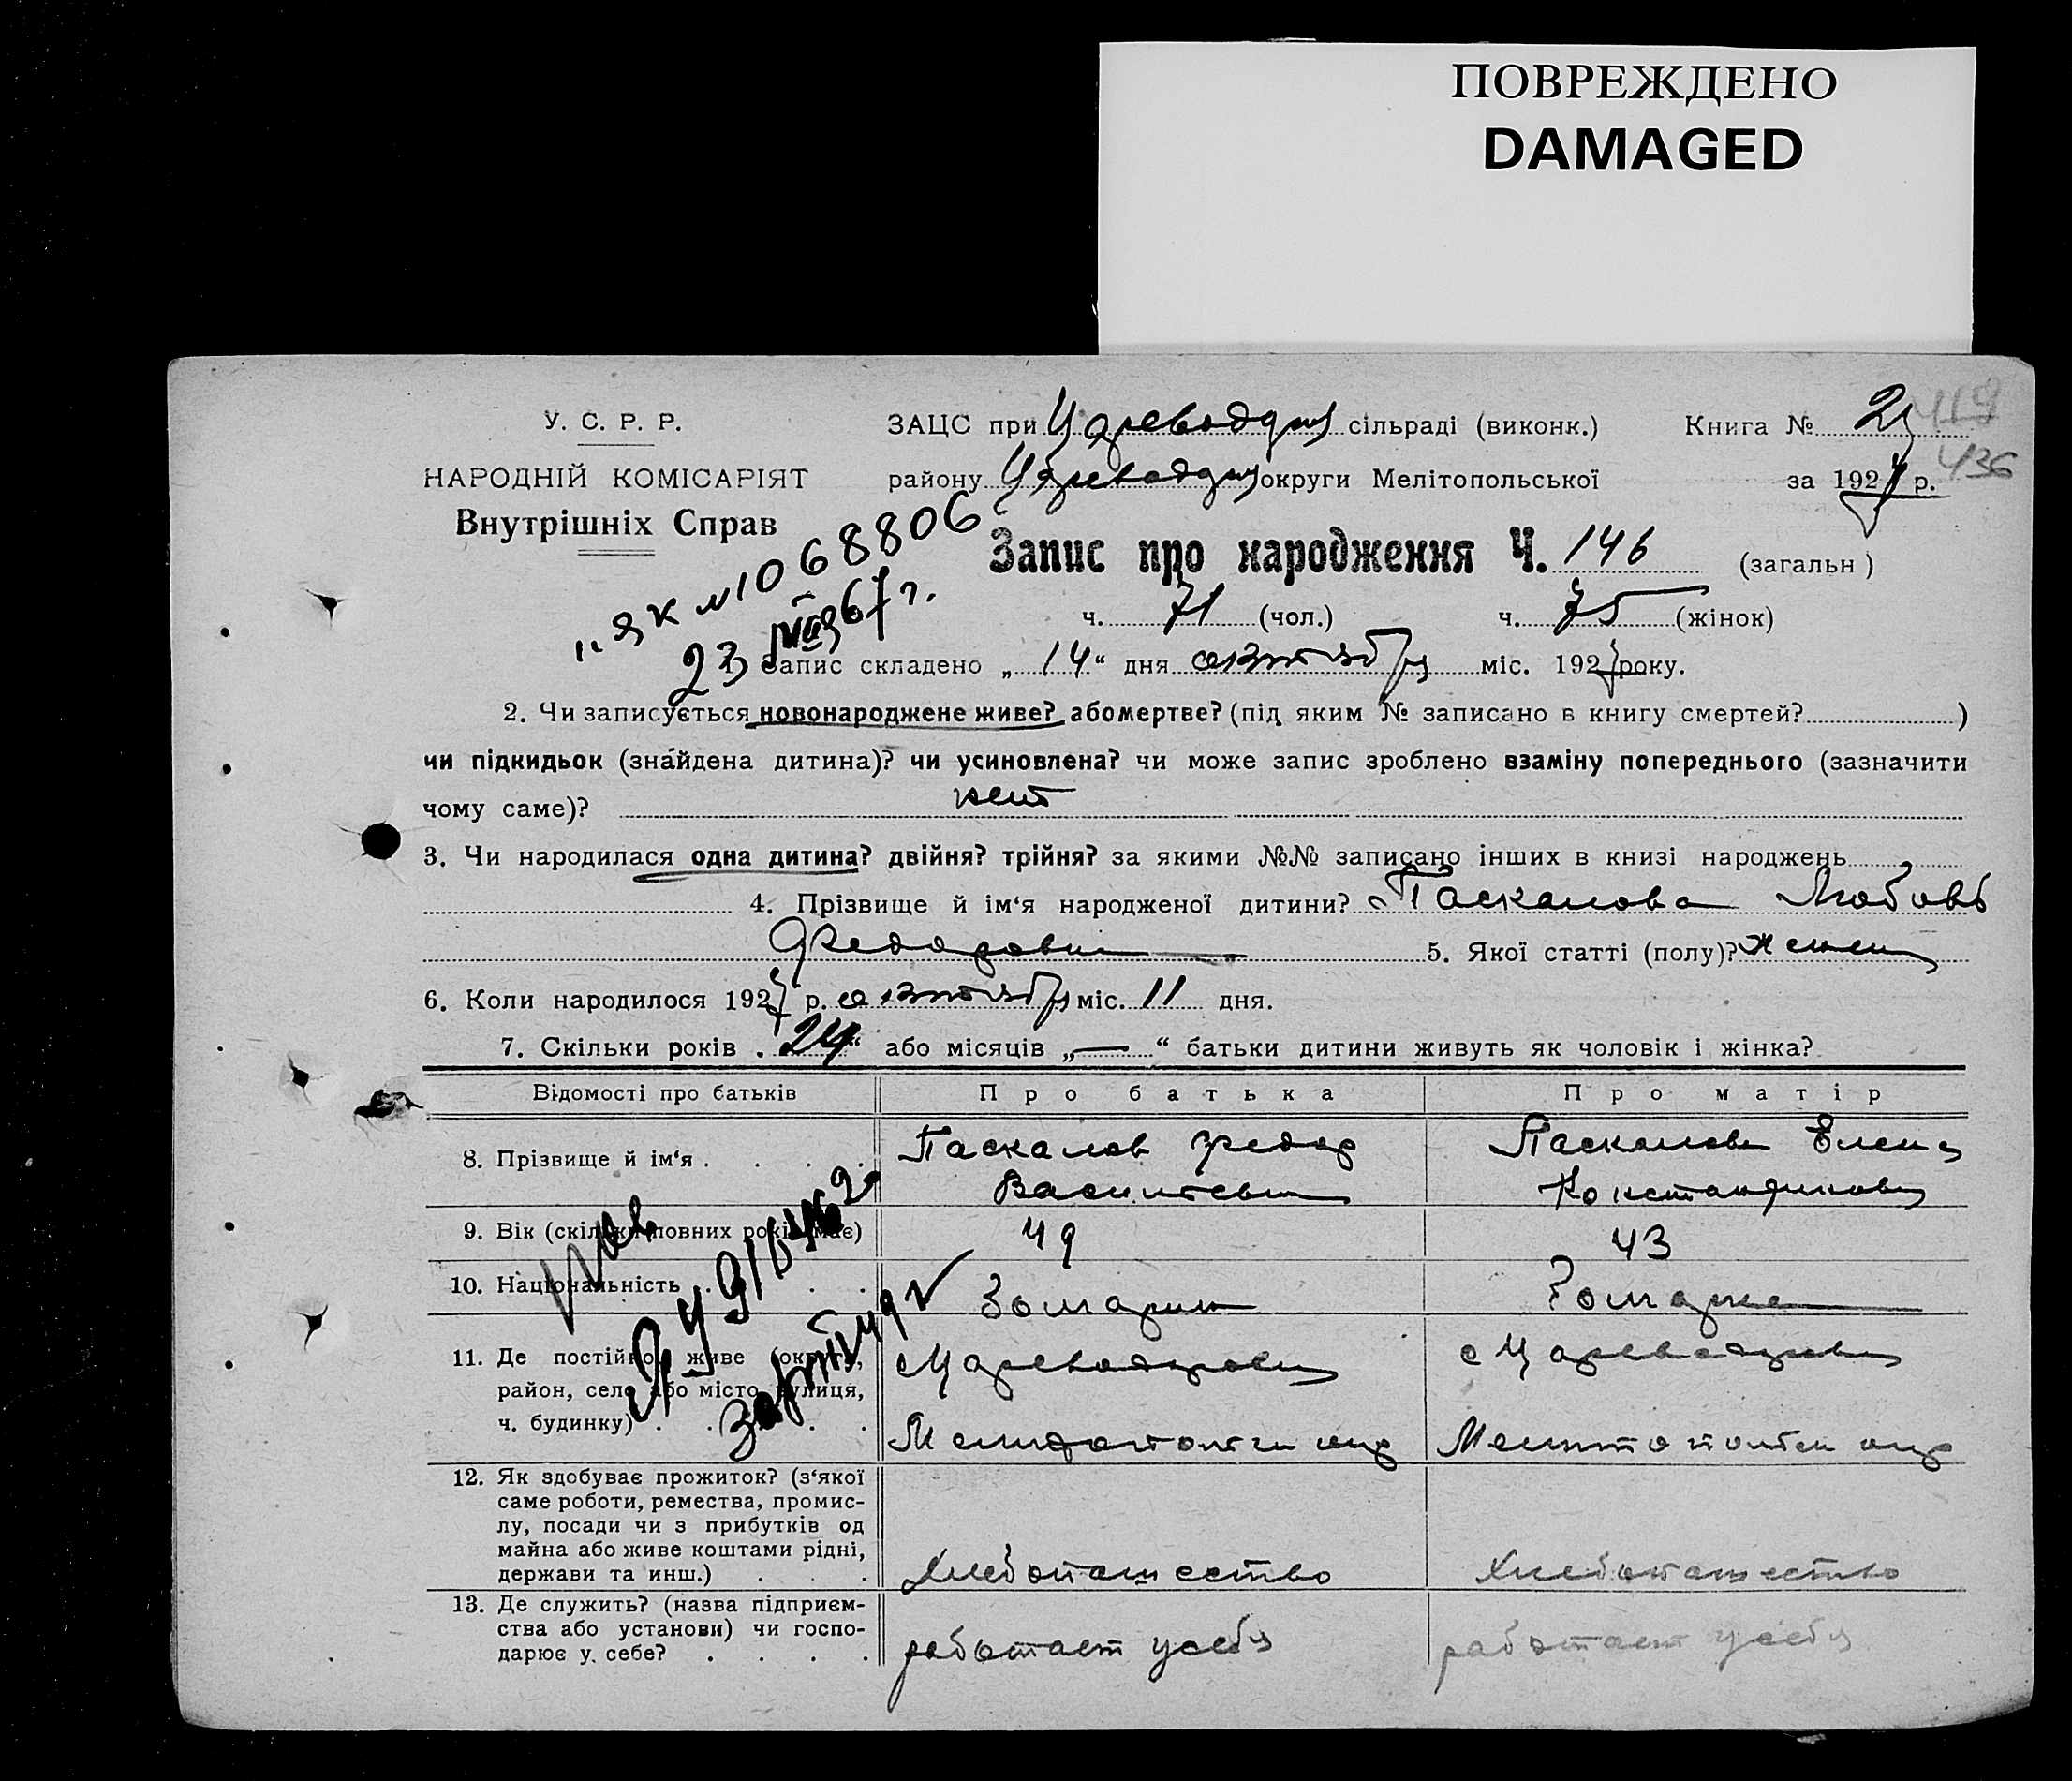 ПОВРЕЖДЕНО
DAMAGED
У. С. Р. Р.
НАРОДНІЙ КОМІСАРІЯТ
Внутрішніх Справ
ЗАЦС при сільраді (виконк.)
району округи Мелітопольської
Книга № 2
419
за 1927 р. 436
"як № 1068806
23 VIII 67 г.
Запис про народження Ч. 146 (загальн)
ч. 71 (чол.) ч. 75 (жінок)
Запис складено „14“ дня октября міс. 1927 року.
2. Чи записується новонароджене живе? або мертве? (під яким № записано в книгу смертей? )
чи підкидьок (знайдена дитина)? чи усиновлена? чи може запис зроблено взаміну попереднього (зазначити
чому саме)? нет
3. Чи народилася одна дитина? двійня? трійня? за якими №№ записано інших в книзі народжень
4. Прізвище й ім‘я народженої дитини? Паскалова Любовь
Федоровна 5. Якої статті (полу)? женск
6. Коли народилося 1927 р. октября міс. 11 дня.
7. Скільки років „24“ або місяців „—“ батьки дитини живуть як чоловік і жінка?
Відомості про батьків Про батька Про матір
8. Прізвище й ім‘я . . . . Паскалов Федор Паскалова Елена
Васильевич Константиновна
9. Вік (скільки повних років має) 49 43
10. Національність . . . . Болгарин Болгарка
11. Де постійно живе (округа,
район, село або місто, вулиця,
ч. будинку) . . . .
с Цареводаровка с Цареводаровка
Мелитопольск окр Мелитопольск окр
12. Як здобуває прожиток? (з‘якої
саме роботи, ремества, промис-
лу, посади чи з прибутків од
майна або живе коштами рідні,
держави та инш.) . . . Хлебопашество Хлебопашество
13. Де служить? (назва підприєм-
ства або установи) чи госпо-
дарює у себе? . . . . работает у себя работает у себя